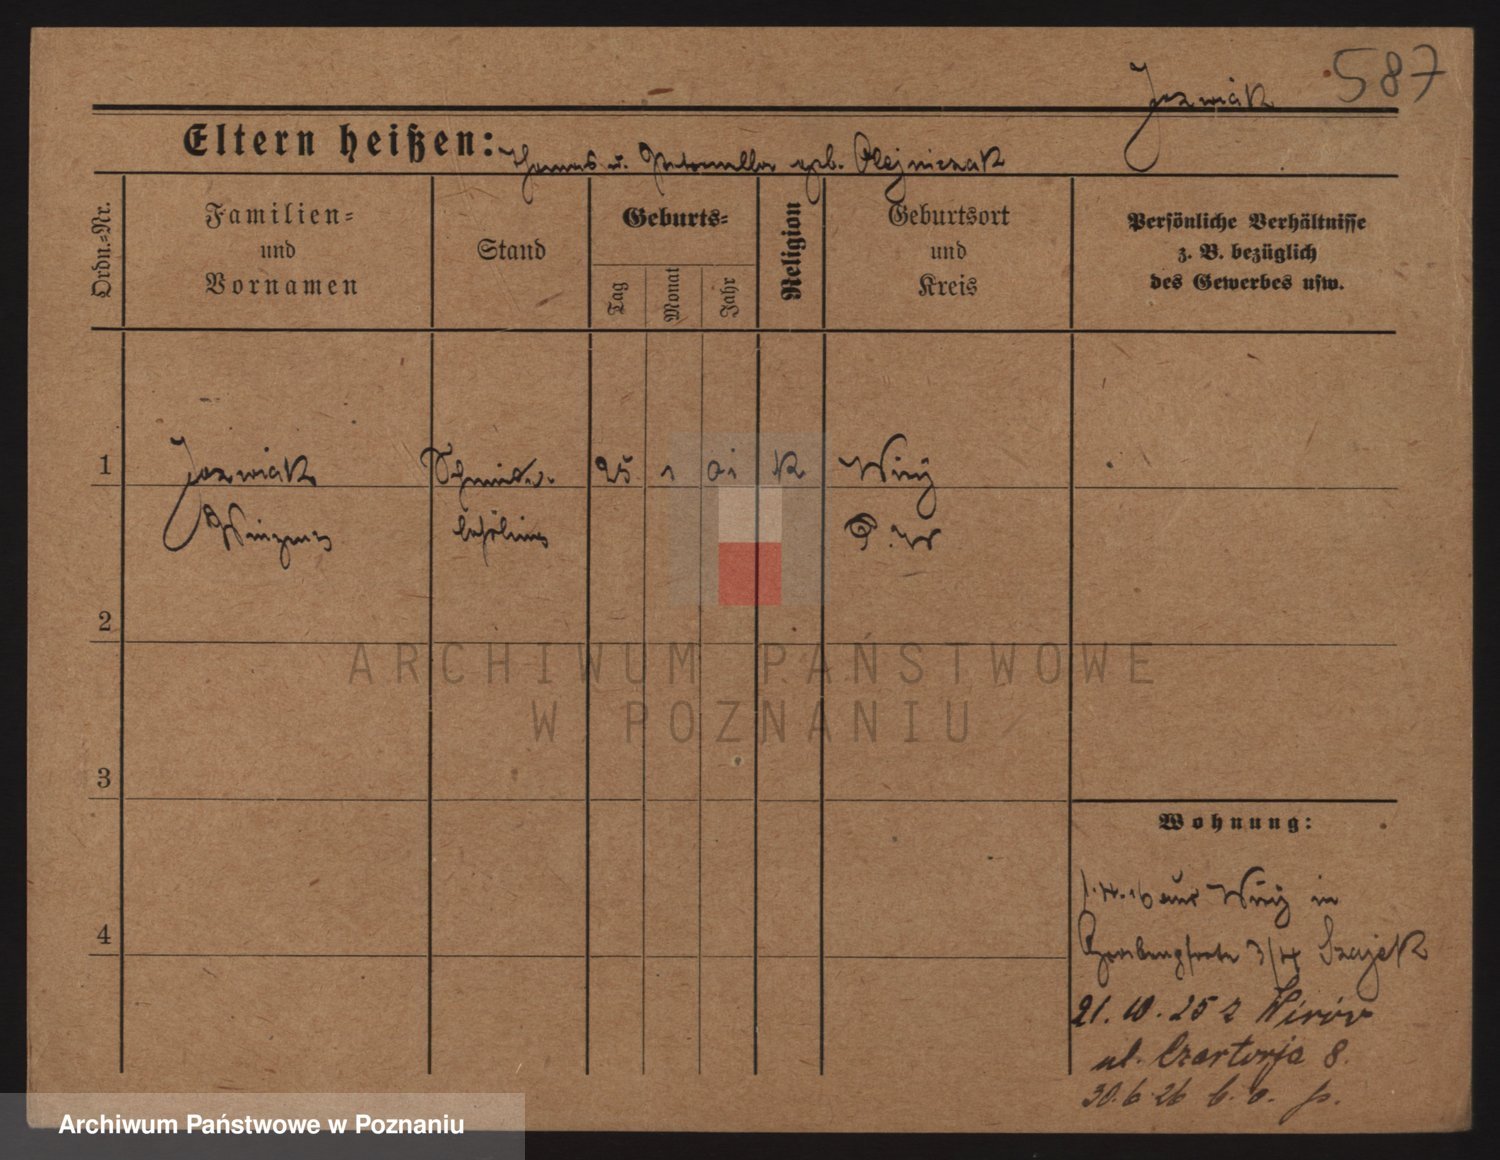 Jozwiak 587
Eltern heißen: Thomas u. geb. Olejniczak
Ordn.-Nr.
Familien-
und
Vornamen
Stand
Geburts-
Tag
Monat
Jahr
Religion
Geburtsort
und
Kreis
Persönliche Verhältnisse
z. B. bezüglich
des Gewerbes usw.
1 Jozwiak 25 1 01 K Wiry
P. W
2
ARCHIWUM PAŃSTWOWE
W POZNANIU
3
Wohnung:
1.4.16 aus Wiry in
4 3/4 Szajek
21. 10. 25 z Wirów
ul. Czartorja 8.
30.6.26 b. o. p.
Archiwum Państwowe w Poznaniu